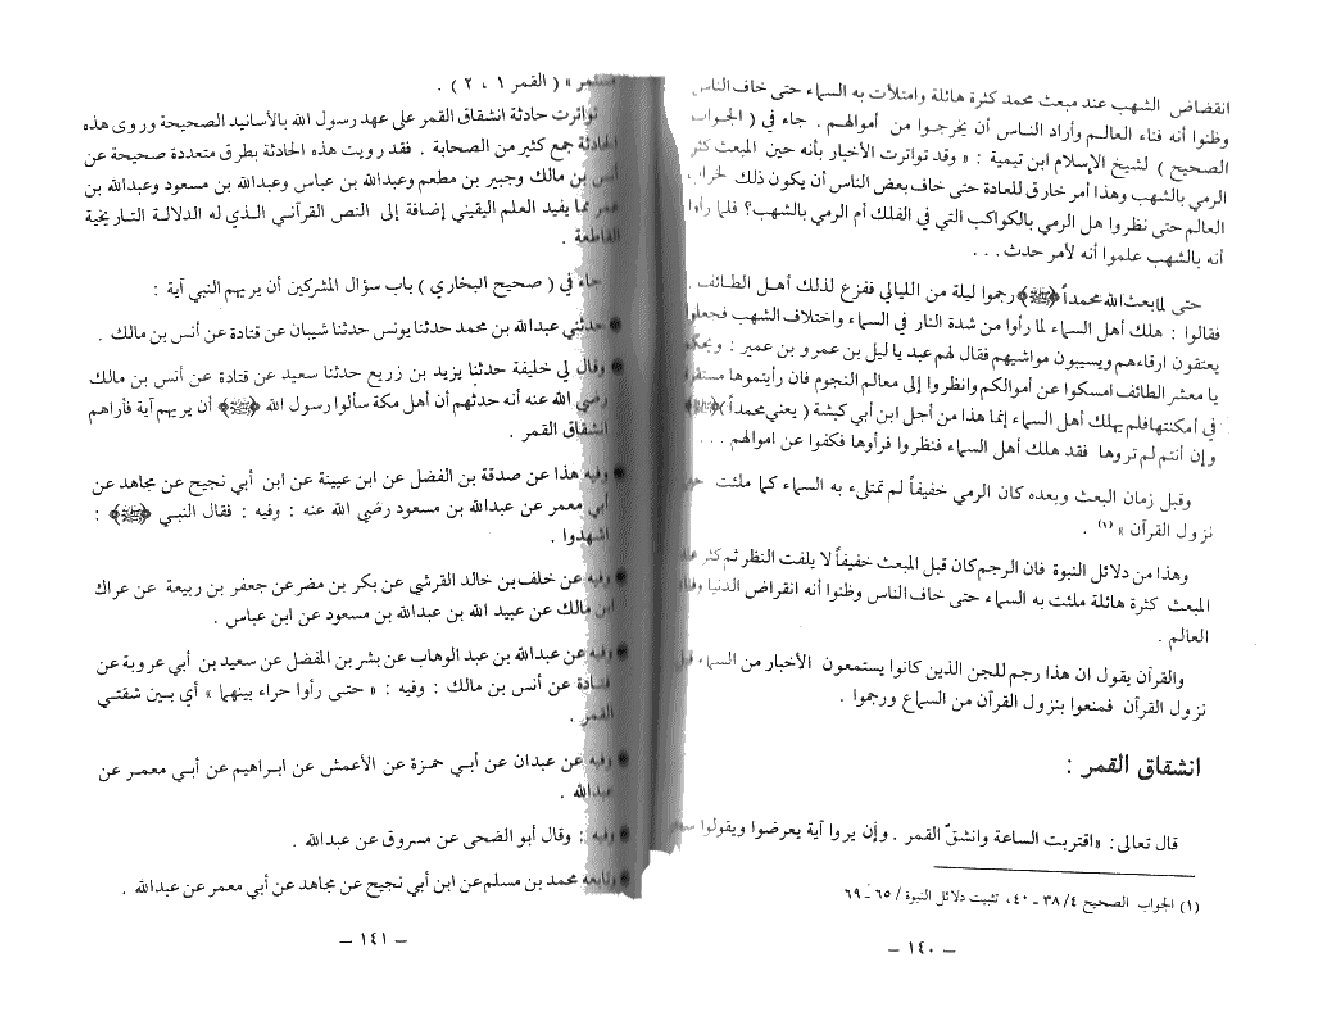 انقضاض الشهب عند مبعث محمد كثرة هائلة وامتلأت به السماء حتى خاف الناس
وظنوا أنه فناء العالم وأراد الناس أن يخرجوا من أموالهم . جاء في ( الجواب
الصحيح ) لشيخ الإسلام ابن تيمية : « وقد تواترت الأخبار بأنه حين المبعث كثر
الرمي بالشهب وهذا أمر خارق للعادة حتى خاف بعض الناس أن يكون ذلك لخراب
العالم حتى نظروا هل الرمي بالكواكب التي في الفلك أم الرمي بالشهب؟ فلما رأوا
أنه بالشهب علموا أنه لأمر حدث . . .
حتى لما بعث الله محمداً ﴿ﷺ﴾ رجموا ليلة من الليالي ففزع لذلك أهل الطائف .
فقالوا : هلك أهل السماء لما رأوا من شدة النار في السماء واختلاف الشهب فجعلوا
يعتقون ارقاءهم ويسيبون مواشيهم فقال لهم عبد يا ليل بن عمرو بن عمير : ويحكم
يا معشر الطائف امسكوا عن أموالكم وانظروا إلى معالم النجوم فان رأيتموها مستقرة
في أمكنتها فلم يهلك أهل السماء إنما هذا من أجل ابن أبي كبشة ( يعني محمداً ) ﴿ﷺ﴾
وإن أنتم لم تروها فقد هلك أهل السماء فنظروا فرأوها فكفوا عن اموالهم . . .
وقبل زمان البعث وبعده كان الرمي خفيفاً لم تمتلىء به السماء كما ملئت
نزول القرآن » (١) .
وهذا من دلائل النبوة فان الرجم كان قبل المبعث خفيفاً لا يلفت النظر ثم كثر عند
المبعث كثرة هائلة ملئت به السماء حتى خاف الناس وظنوا أنه انقراض الدنيا وفناء
العالم .
والقرآن يقول ان هذا رجم للجن الذين كانوا يستمعون الأخبار من السماء قبل
نزول القرآن فمنعوا بنزول القرآن من السماع ورجموا .
انشقاق القمر :
قال تعالى : «اقتربت الساعة وانشقّ القمر . وإن يروا آية يعرضوا ويقولوا سحر
(١) الجواب الصحيح ٤/ ٣٨ ـ ٤٠، تثبيت دلائل النبوة / ٦٥ ـ ٦٩
— ١٤٠ —
مستمر » ( القمر ١ ، ٢ ) .
تواترت حادثة انشقاق القمر على عهد رسول الله بالأسانيد الصحيحة وروى هذه
الحادثة جمع كثير من الصحابة . فقد رويت هذه الحادثة بطرق متعددة صحيحة عن
أنس بن مالك وجبير بن مطعم وعبدالله بن عباس وعبدالله بن مسعود وعبدالله بن
عمر مما يفيد العلم اليقيني إضافة إلى النص القرآني الذي له الدلالة التاريخية
القاطعة .
جاء في ( صحيح البخاري ) باب سؤال المشركين أن يريهم النبي آية :
● حدثني عبدالله بن محمد حدثنا يونس حدثنا شيبان عن قتادة عن أنس بن مالك .
● وقال لي خليفة حدثنا يزيد بن زريع حدثنا سعيد عن قتادة عن أنس بن مالك
رضي الله عنه أنه حدثهم أن أهل مكة سألوا رسول الله ﴿ﷺ﴾ أن يريهم آية فأراهم
انشقاق القمر .
● وفيه هذا عن صدقة بن الفضل عن ابن عيينة عن ابن أبي نجيح عن مجاهد عن
أبي معمر عن عبدالله بن مسعود رضي الله عنه : وفيه : فقال النبي ﴿ﷺ﴾ :
اشهدوا .
● وفيه عن خلف بن خالد القرشي عن بكر بن مضر عن جعفر بن ربيعة عن عراك
ابن مالك عن عبيد الله بن عبدالله بن مسعود عن ابن عباس .
● وفيه عن عبدالله بن عبد الوهاب عن بشر بن المفضل عن سعيد بن أبي عروبة عن
قتادة عن أنس بن مالك : وفيه : « حتى رأوا حراء بينهما » أي بين شقتي
القمر .
● وفيه عن عبدان عن أبي حمزة عن الأعمش عن ابراهيم عن أبي معمر عن
عبدالله .
● وفيه : وقال أبو الضحى عن مسروق عن عبدالله .
● وتابعه محمد بن مسلم عن ابن أبي نجيح عن مجاهد عن أبي معمر عن عبدالله .
— ١٤١ —